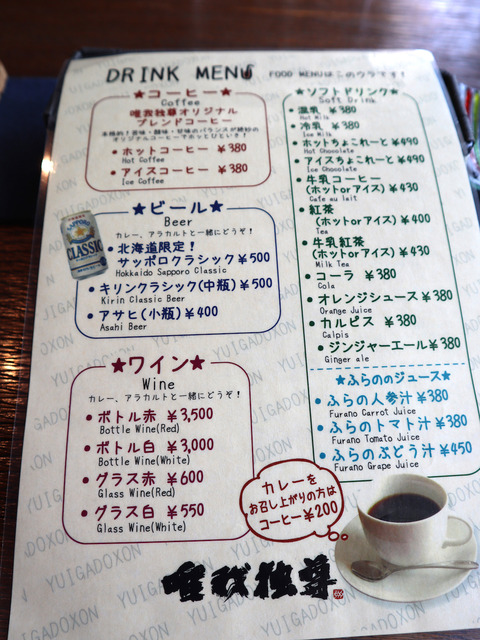 DRINK MENU
FOOD MENUはこのウラです!
★コーヒー★
Coffee
唯我独尊オリジナル
ブレンドコーヒー
本格的!苦味・酸味・甘味のバランスが絶妙の
オリジナルコーヒーでホッとひといき!
・ホットコーヒー ¥380
Hot Coffee
・アイスコーヒー ¥380
Ice Coffee
★ビール★
Beer
カレー、アラカルトと一緒にどうぞ!
・北海道限定!
サッポロクラシック¥500
Hokkaido Sapporo Classic
・キリンクラシック(中瓶)¥500
Kirin Classic Beer
・アサヒ(小瓶)¥400
Asahi Beer
SAPPORO
CLASSIC
★ワイン★
Wine
カレー、アラカルトと一緒にどうぞ!
・ボトル赤 ¥3,500
Bottle Wine(Red)
・ボトル白 ¥3,000
Bottle Wine(White)
・グラス赤 ¥600
Glass Wine(Red)
・グラス白 ¥550
Glass Wine(White)
★ソフトドリンク★
Soft Drink
・温乳 ¥380
Hot Milk
・冷乳 ¥380
Ice Milk
・ホットちょこれーと ¥490
Hot Chocolate
・アイスちょこれーと ¥490
Ice Chocolate
・牛乳コーヒー
(ホットorアイス) ¥430
Cafe au lait
・紅茶
(ホットorアイス) ¥400
Tea
・牛乳紅茶
(ホットorアイス) ¥430
Milk Tea
・コーラ ¥380
Cola
・オレンジジュース ¥380
Orange Juice
・カルピス ¥380
Calpis
・ジンジャーエール¥380
Ginger ale
★ふらののジュース★
・ふらの人参汁 ¥380
Furano Carrot Juice
・ふらのトマト汁 ¥380
Furano Tomato Juice
・ふらのぶどう汁 ¥450
Furano Grape Juice
カレーを
お召し上がりの方は
コーヒー¥200
唯我独尊
YUIGADOXON